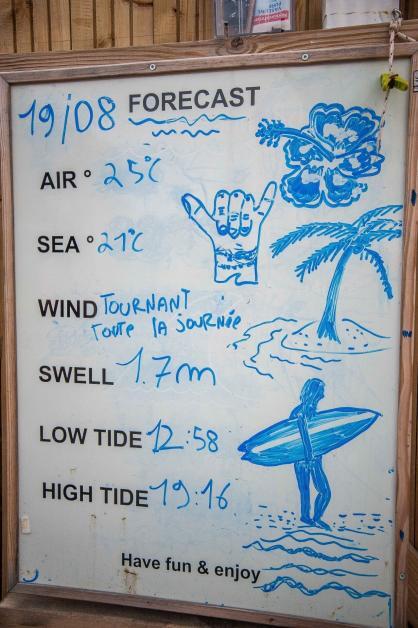 19/08 FORECAST
AIR ° 25°C
SEA ° 21°C
WIND TOURNANT
TOUTE LA JOURNÉE
SWELL 1.7m
LOW TIDE 12:58
HIGH TIDE 19:16
Have fun & enjoy